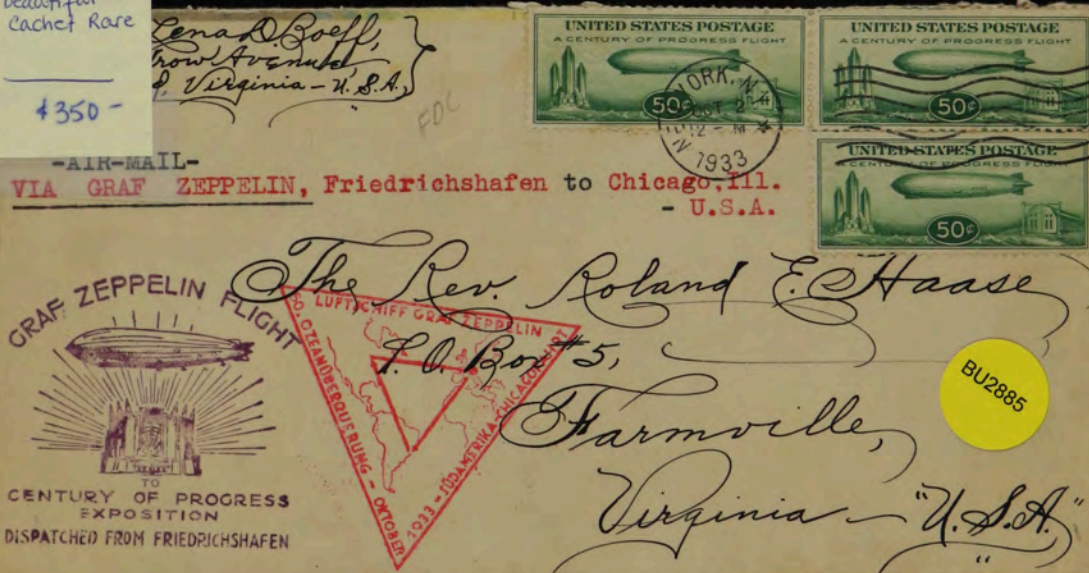 beautiful
Cachet Rare
$350-
Lena D. Boeff,
row Avenue
Virginia - U.S.A.
FDC
UNITED STATES POSTAGE
A CENTURY OF PROGRESS FLIGHT
50¢
UNITED STATES POSTAGE
A CENTURY OF PROGRESS FLIGHT
50¢
UNITED STATES POSTAGE
A CENTURY OF PROGRESS FLIGHT
50¢
NEW YORK, N.Y.
OCT 2
12-M
1933
-AIR-MAIL-
VIA GRAF ZEPPELIN, Friedrichshafen to Chicago, Ill.
- U.S.A.
The Rev. Roland E. Haase
P.O. Box #5,
Farmville,
Virginia - "U.S.A."
GRAF ZEPPELIN FLIGHT
TO
CENTURY OF PROGRESS
EXPOSITION
DISPATCHED FROM FRIEDRICHSHAFEN
LUFTSCHIFF GRAF ZEPPELIN
50. OZEANÜBERQUERUNG - OKTOBER
1933 - SÜDAMERIKA-CHICAGOFAHRT
BU2885